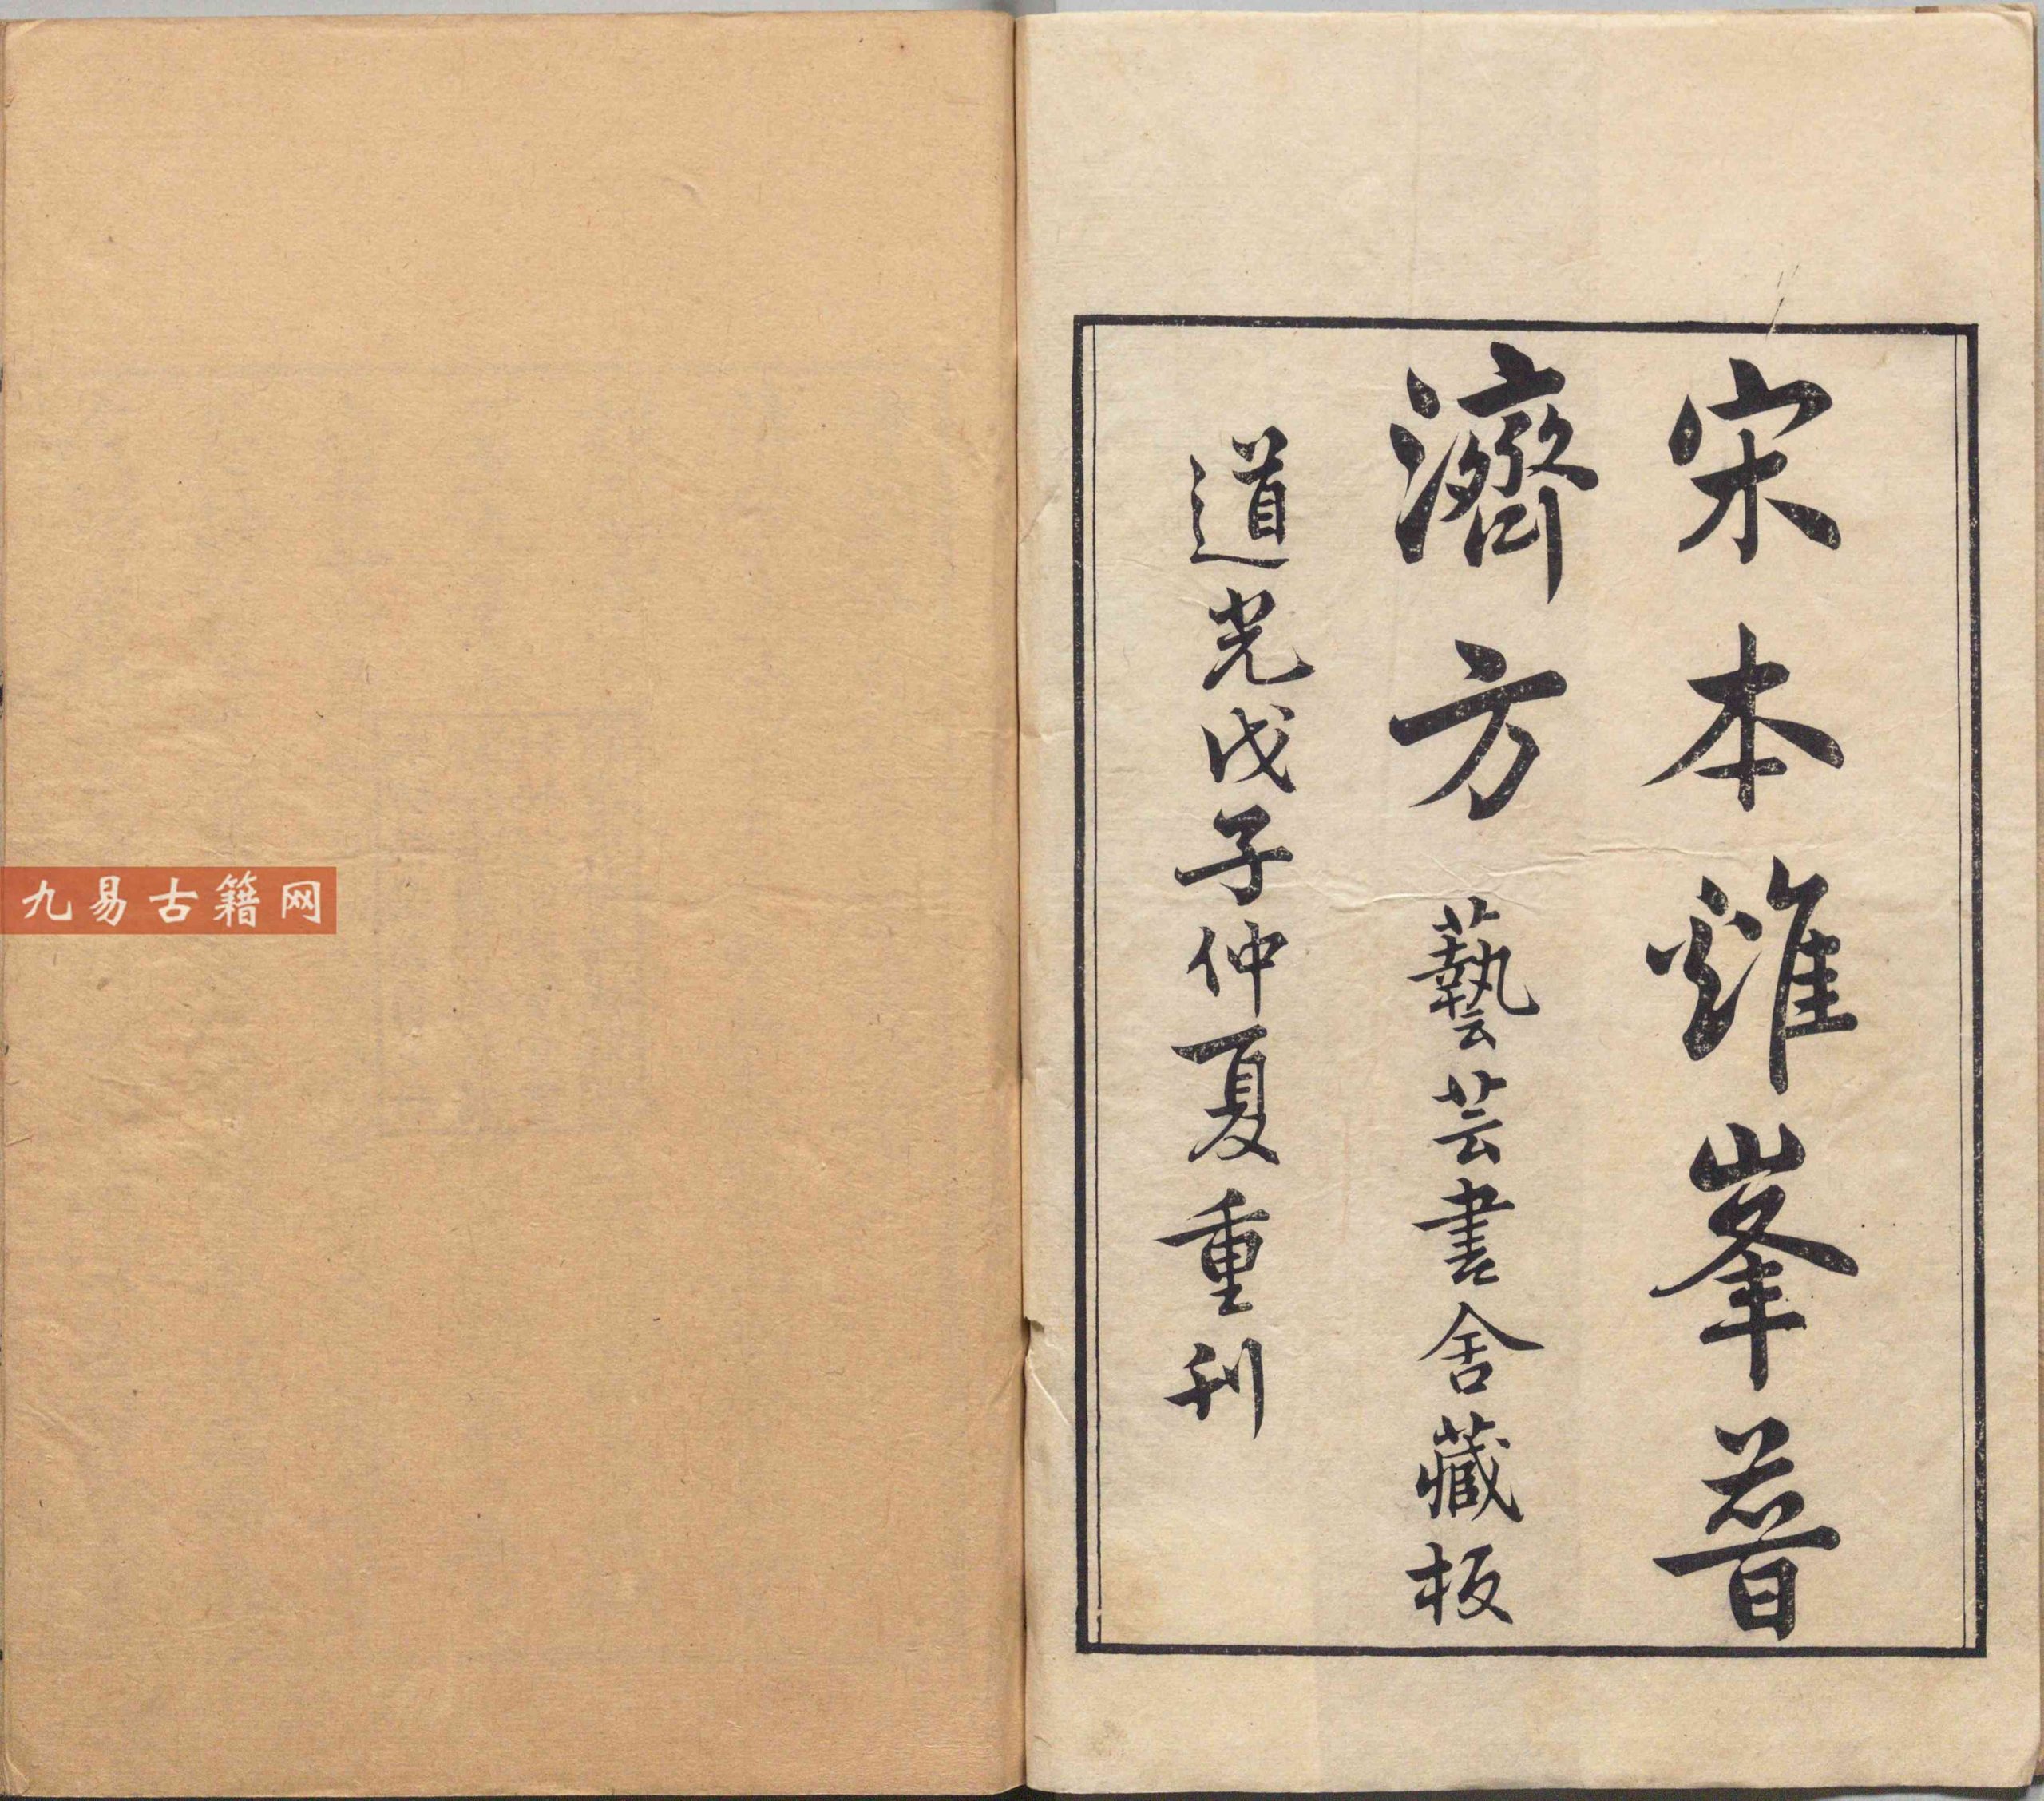 宋本雞峯普
濟方 藝芸書舍藏板
道光戊子仲夏重刊
九易古籍网